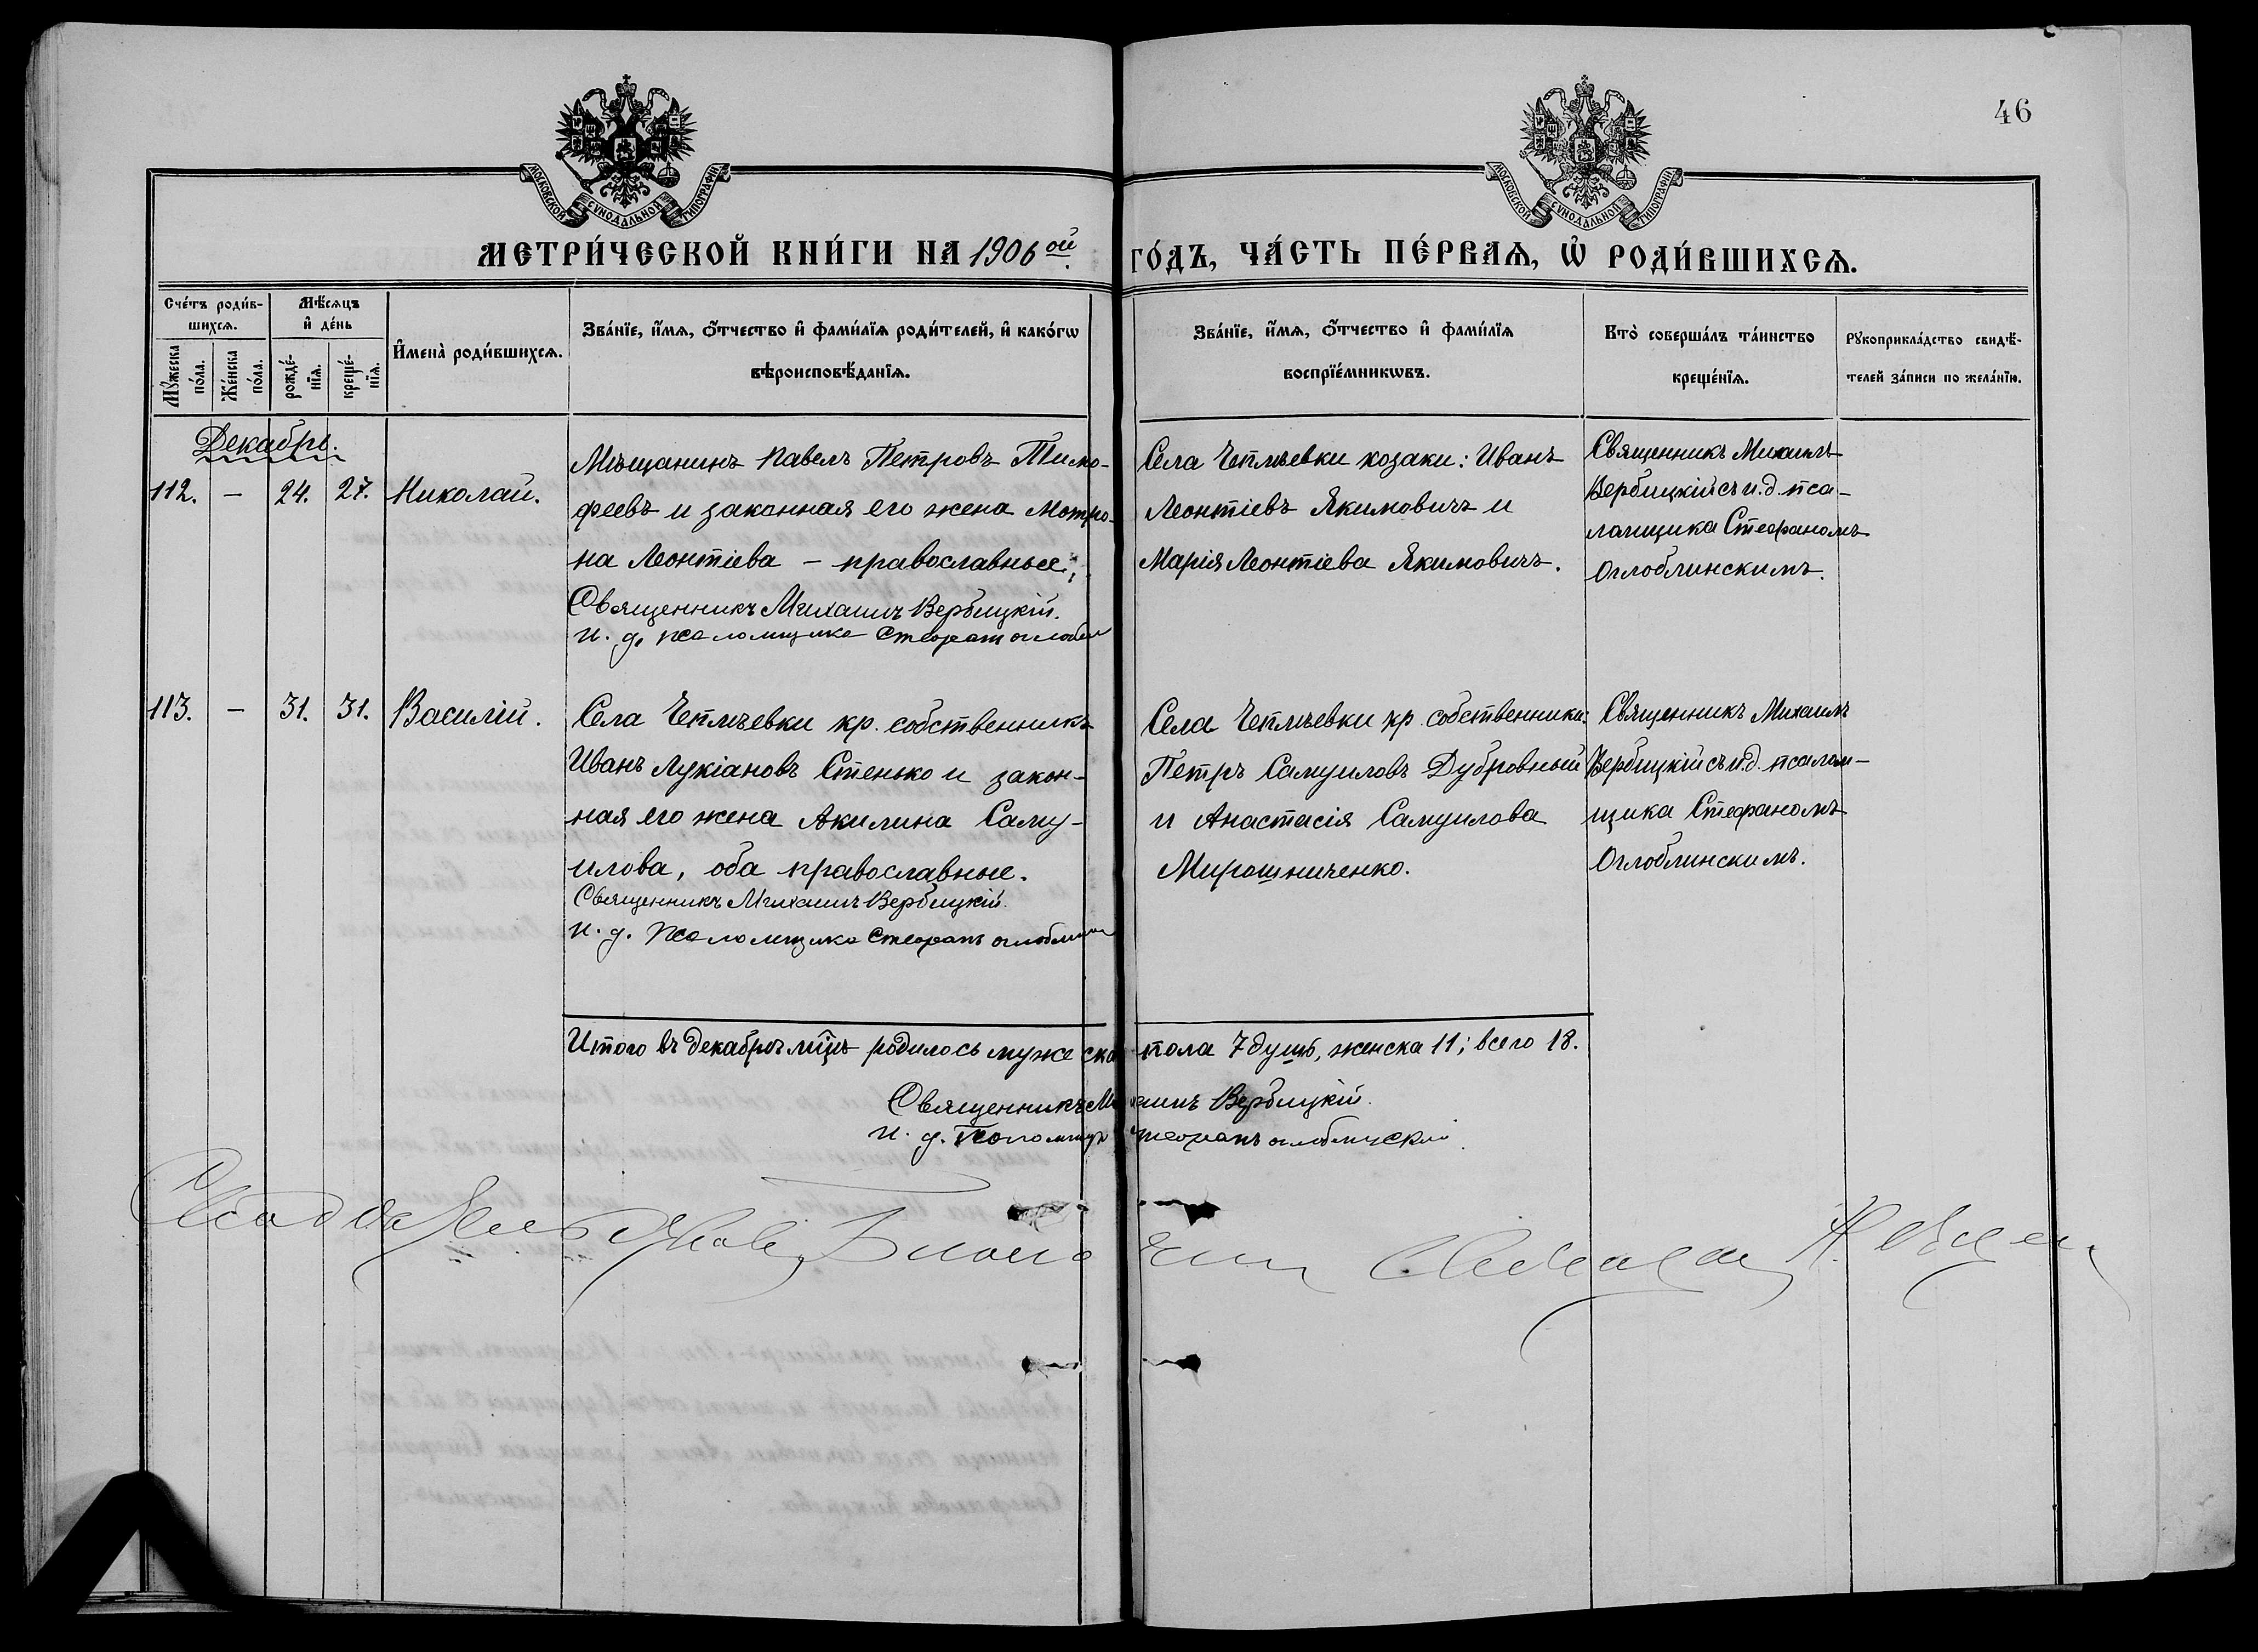 46
МОСКОВСКОЙ СѴНОДАЛЬНОЙ ТИПОГРАФІИ
МОСКОВСКОЙ СѴНОДАЛЬНОЙ ТИПОГРАФІИ
МЕТРИ́ЧЕСКОЙ КНИ́ГИ НА 1906ой ГО́ДЪ, ЧА́СТЬ ПЕ́РВАѦ, Ѡ҆ РОДИ́ВШИХСѦ.
Сче́тъ роди́в-
шихсѧ.
Мꙋ́жеска
по́ла.
Же́нска
по́ла.
Мѣ́сѧцъ
и҆ де́нь
рожде́-
нїѧ.
креще́-
нїѧ.
И҆мена̀ роди́вшихсѧ.
Зва́нїе, и҆́мѧ, ѻ҆́тчество и҆ фами́лїѧ роди́телей, и҆ како́гѡ
вѣроисповѣ́данїѧ.
Зва́нїе, и҆́мѧ, ѻ҆́тчество и҆ фами́лїѧ
воспрїе́мникѡвъ.
Кто̀ соверша́лъ та́инство
креще́нїѧ.
Рꙋкоприкла́дство свидѣ́-
телей за́писи по жела́нїю.
Декабрь.
112. — 24. 27. Николай.
Мѣщанинъ Павелъ Петровъ Тимо-
феевъ и законная его жена Мотро-
на Леонтіева – православные;
Священникъ Михаилъ Вербицкій.
и. д. псаломщика Стефанъ
Села Чепліевки козаки: Иванъ
Леонтіевъ Якимовичъ и
Марія Леонтіева Якимовичъ.
Священникъ Михаилъ
Вербицкій съ и.д. пса-
ломщика Стефаномъ
Оглоблинскимъ.
113. — 31. 31. Василій.
Села Чепліевки кр. собственникъ
Иванъ Лукіановъ Стенько и закон-
ная его жена Акилина Саму-
илова, оба православные.
Священникъ Михаилъ Вербицкій.
и. д. Псаломщика Стефанъ
Села Чепліевки кр. собственники:
Петръ Самуиловъ Дубровный
и Анастасія Самуилова
Мирошниченко.
Священникъ Михаилъ
Вербицкій съ и.д. псалом-
щика Стефаномъ
Оглоблинскимъ.
Итого въ декабрѣ мцѣ родилось мужеска пола 7 душъ, женска 11; всего 18.
Священникъ Михаилъ Вербицкій.
и. д. Псаломщ Стефанъ Оглоблинскій.